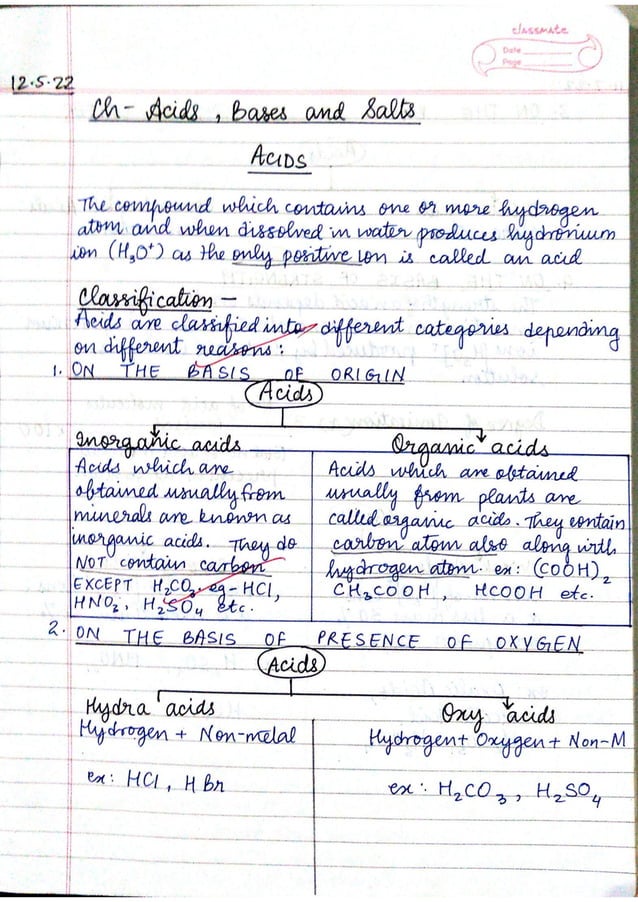 classmate
Date
Page
12.5.22
Ch- Acids, Bases and Salts
ACIDS
The compound which contains one or more hydrogen
atom and when dissolved in water produces hydronium
ion (H₃O⁺) as the only positive ion is called an acid
Classification -
Acids are classified into different categories depending
on different reasons:
1. ON THE BASIS OF ORIGIN
Acids
Inorganic acids
Acids which are
obtained usually from
minerals are known as
inorganic acids. They do
NOT contain carbon
EXCEPT H₂CO₃. eg- HCl,
HNO₃, H₂SO₄ etc.
Organic acids
Acids which are obtained
usually from plants are
called organic acids. They contain
carbon atom also along with
hydrogen atom. ex: (COOH)₂
CH₃COOH, HCOOH etc.
2. ON THE BASIS OF PRESENCE OF OXYGEN
Acids
Hydra acids
Hydrogen + Non-metal
ex: HCl, HBr
Oxy acids
Hydrogen + Oxygen + Non-M
ex: H₂CO₃, H₂SO₄